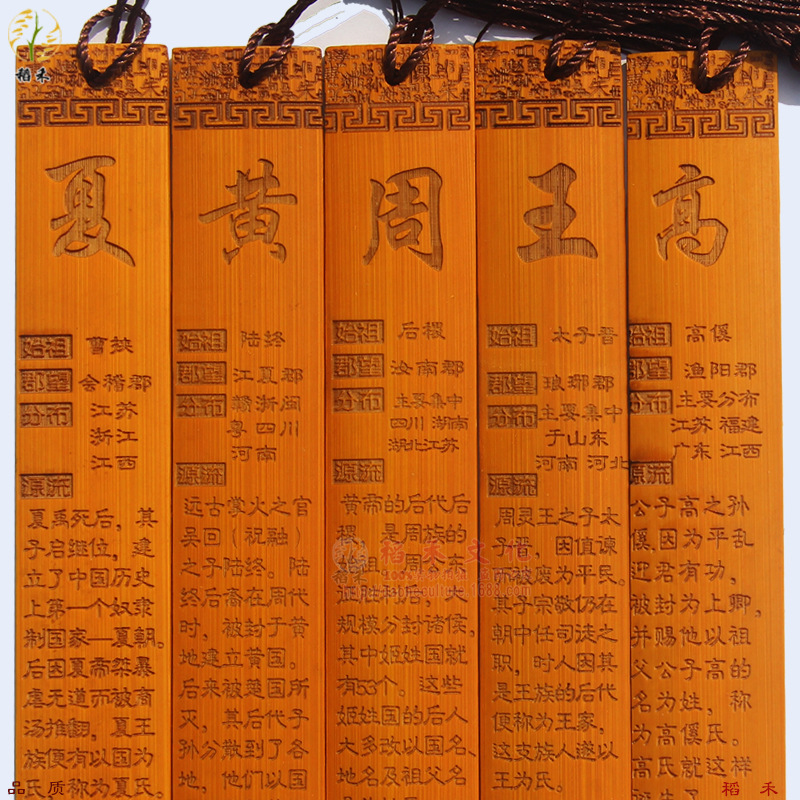 稻禾
夏
始祖 曹挟
郡望 会稽郡
分布 江苏
浙江
江西
源流
夏禹死后，其
子启继位，建
立了中国历史
上第一个奴隶
制国家—夏朝。
后因夏帝桀暴
虐无道而被商
汤推翻，夏王
族便有以国为
氏，称为夏氏。
黄
始祖 陆终
郡望 江夏郡
分布 赣浙闽
粤四川
河南
源流
远古掌火之官
吴回（祝融）
之子陆终。陆
终后裔在周代
时，被封于黄
地建立黄国。
后来被楚国所
灭，其后代子
孙分散到了各
地，他们以国
周
始祖 后稷
郡望 汝南郡
分布 主要集中
四川 湖南
湖北江苏
源流
黄帝的后代后
稷，是周族的
始祖。周公东
征胜利后，大
规模分封诸侯，
其中姬姓国就
有53个。这些
姬姓国的后人
大多改以国名、
地名及祖父名
王
始祖 太子晋
郡望 琅琊郡
分布 主要集中
于山东
河南 河北
源流
周灵王之子太
子晋，因值谏
而被废为平民。
其子宗敬仍在
朝中任司徒之
职，时人因其
是王族的后代
便称为王家，
这支族人遂以
王为氏。
高
始祖 高傒
郡望 渔阳郡
分布 主要分布
江苏 福建
广东 江西
源流
公子高之孙
傒，因为平乱
迎君有功，
被封为上卿，
并赐他以祖
父公子高的
名为姓，称
为高傒氏。
高氏就这样
诞生了
稻禾文化
品质
稻禾